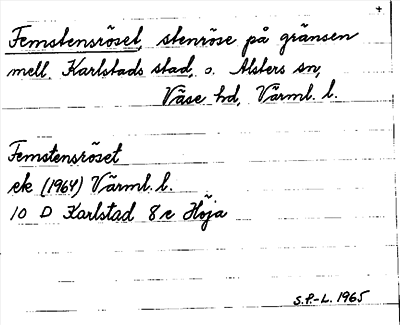 +
Femstensröset, stenröse på gränsen
mell. Karlstads stad, o. Alsters sn,
Väse hd, Värml. l.
Femstensröset
ek (1964) Värml. l.
10 D Karlstad 8 e Höja
S.P.-L. 1965